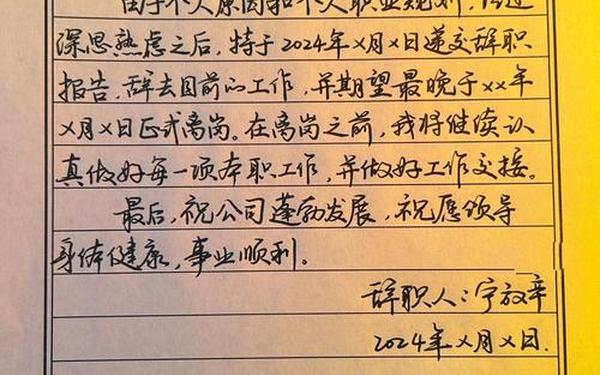 由于个人原因和个人职业规划,经过
深思熟虑之后,特于2024年X月X日递交辞职
报告,辞去目前的工作,并期望最晚于xx年
X月X日正式离岗。在离岗之前,我将继续认
真做好每一项本职工作,并做好工作交接。
最后,祝公司蓬勃发展,祝愿领导
身体健康,事业顺利。
辞职人:宁放辛
2024年X月X日.